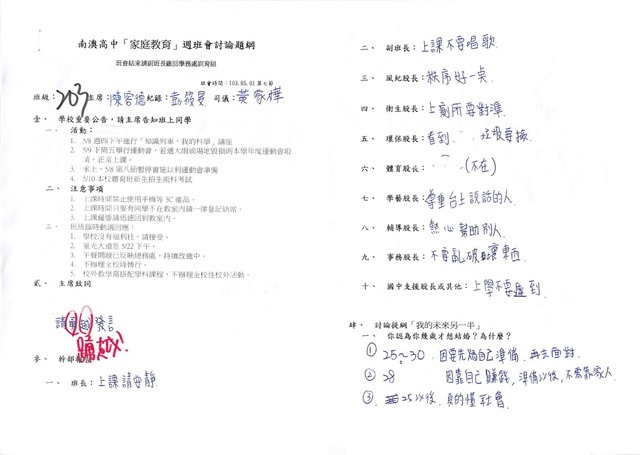 南澳高中「家庭教育」週班會討論題綱
班會結束請副班長繳回學務處訓育組
班會時間：103.05.01 第七節
班級：203 主席：陳容德 紀錄：彭筱旻 司儀：黃家樺
壹、 學校重要公告，請主席告知班上同學
一、 活動：
1. 5/8 週四下午進行「知識列車，我的科學」講座
2. 5/9 下週五舉行運動會，若遇大雨或場地毀損則本學年度運動會取消，正常上課。
3. 承上，5/8 第八節暫停實施以利運動會準備
4. 5/10 本校體育班新生招生術科考試
二、 注意事項
1. 上課時間禁止使用手機等 3C 產品。
2. 上課時間只要有同學不在教室內請一律登記缺席。
3. 上課鐘響請迅速回到教室內。
三、 班級臨時動議回應：
1. 學校沒有福利社，請接受。
2. 星光大道是 5/22 下午。
3. 午餐問題已反映總務處，持續改進中。
4. 不辦理全校烤博行。
5. 校外教學需搭配學科課程，不辦理全校性校外活動。
貳、 主席致詞
請 發言
踴躍
參、 幹部報告
一、 班長：上課請安靜
二、 副班長：上課不要唱歌
三、 風紀股長：秩序好一點
四、 衛生股長：上廁所要對準
五、 環保股長：看到 垃圾要撿
六、 體育股長：(不在)
七、 學藝股長：尊重台上說話的人
八、 輔導股長：熱心幫助別人
九、 事務股長：不要亂破壞東西
十、 國中支援股長或其他：上學不要遲到
肆、 討論提綱「我的未來另一半」
一、 你認為你幾歲才想結婚？為什麼？
① 25～30 因要先給自己準備，再去面對.
② 28 因靠自己賺錢，準備以後，不需靠家人
③ 25以後. 真的懂社會